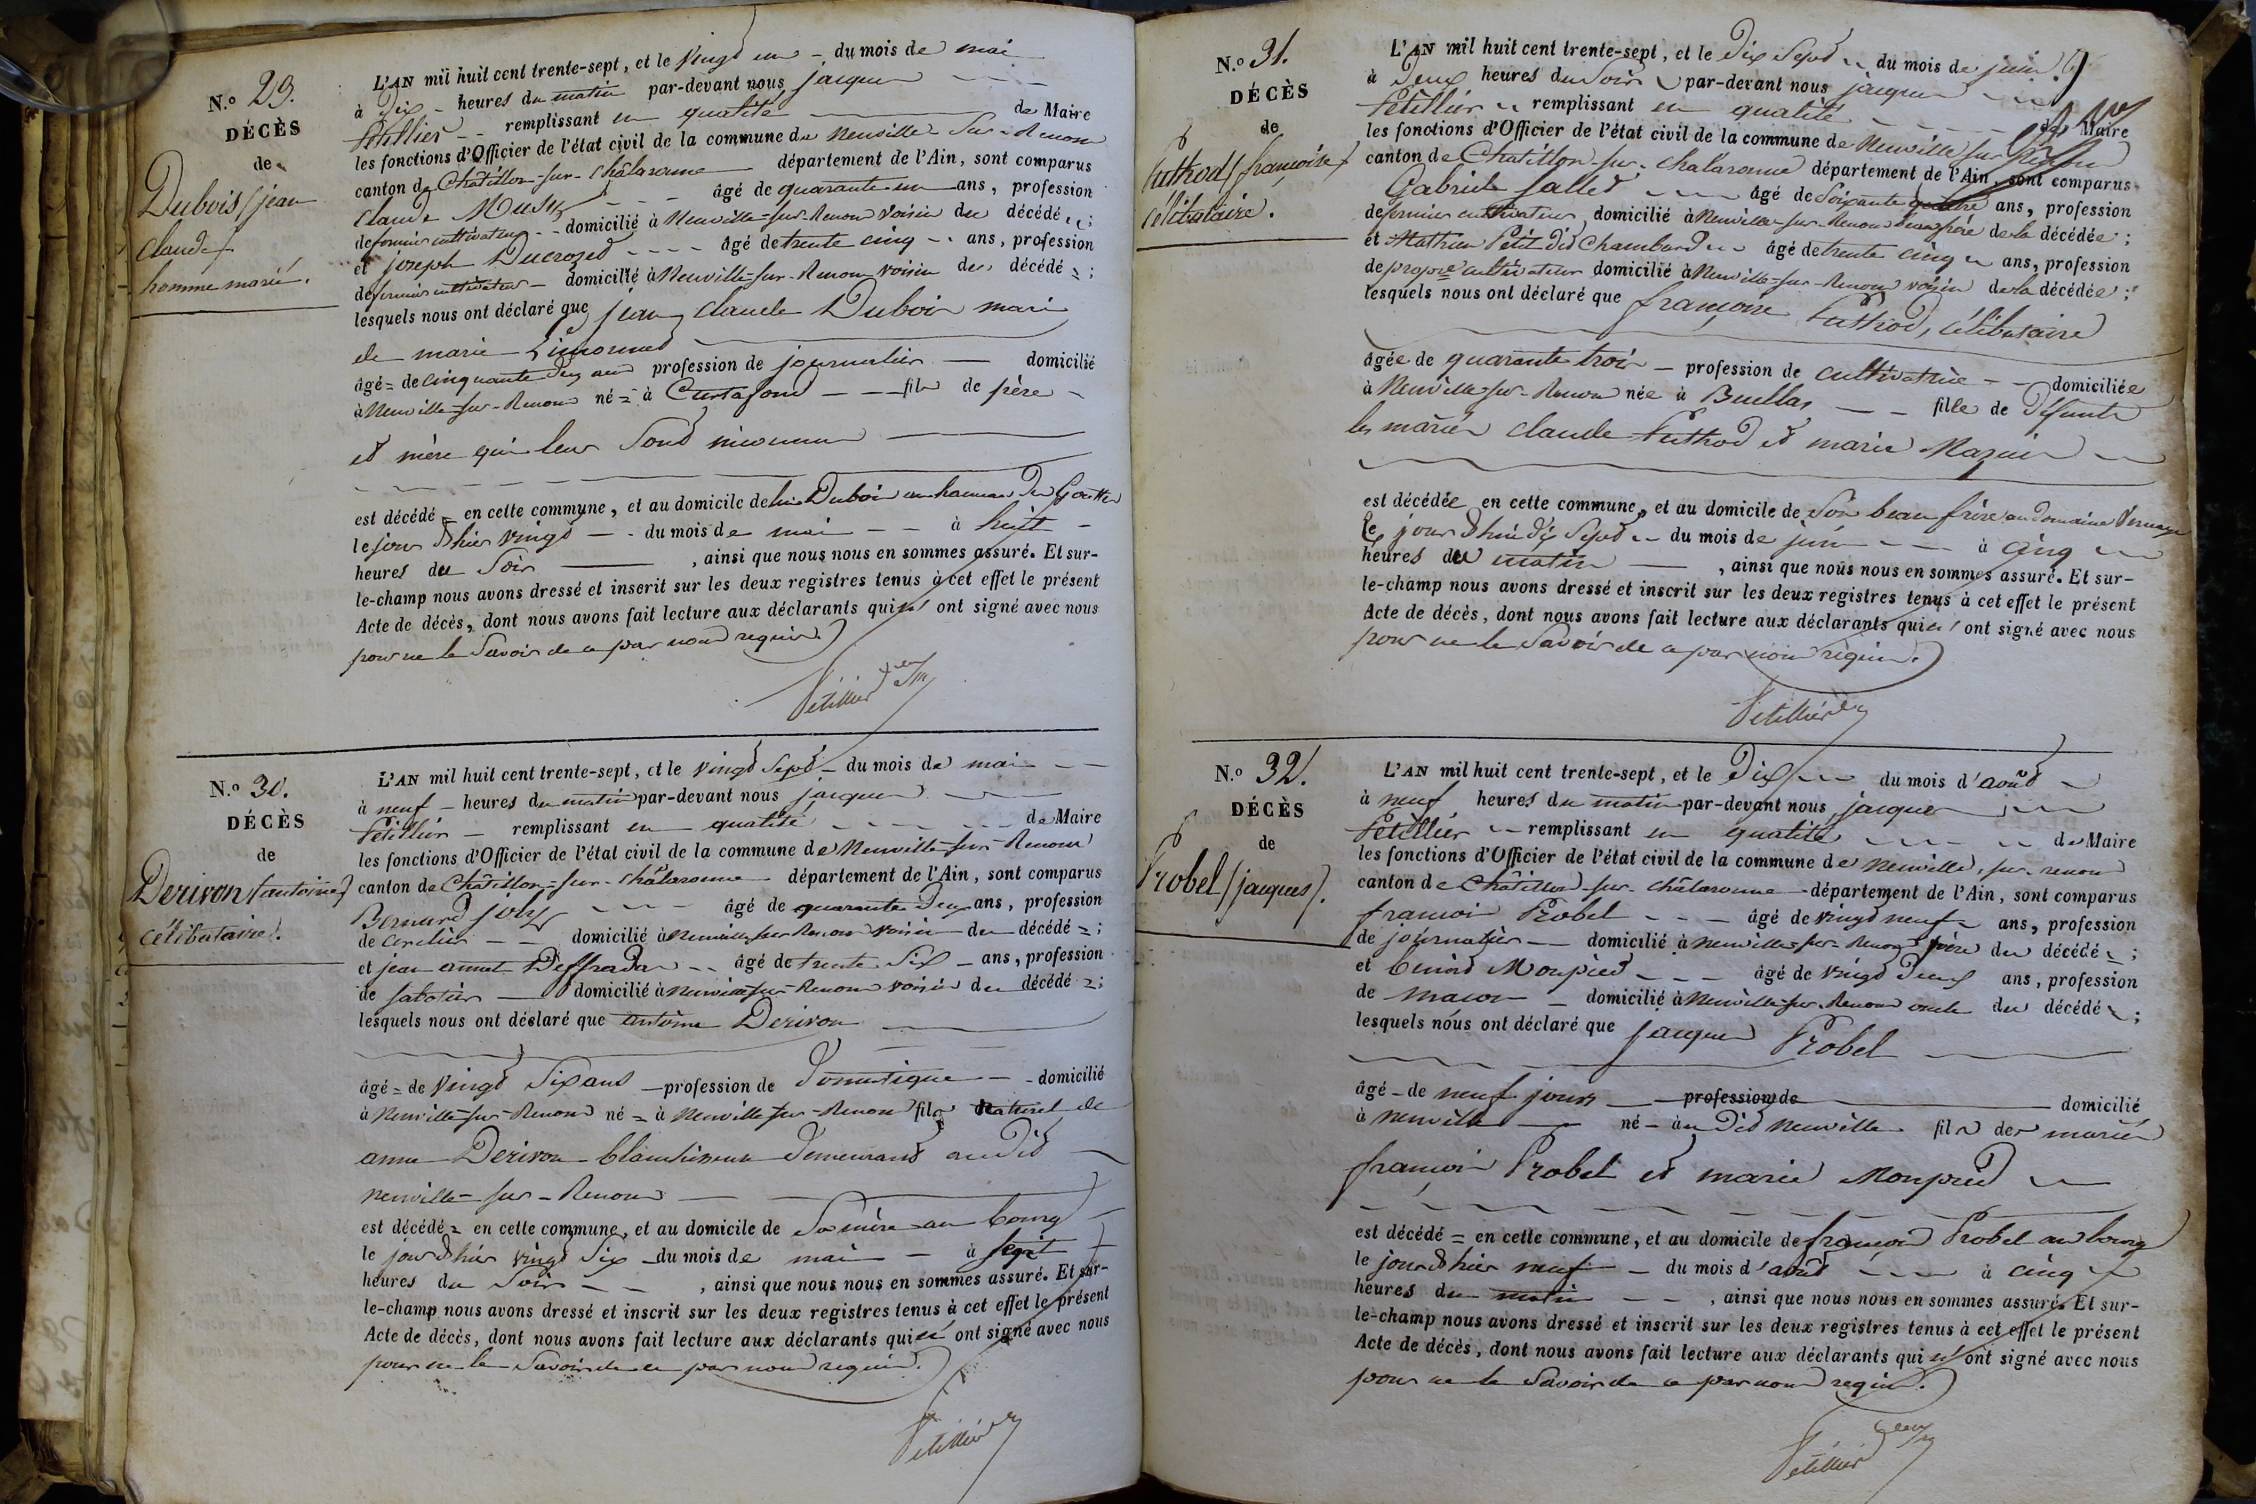 N.o 29.
DÉCÈS
de
Dubois (jean
claude)
homme marié.
L'AN mil huit cent trente-sept, et le vingt un du mois de mai
à dix heures du matin par-devant nous jacques
Petillier remplissant en qualité de Maire
les fonctions d'Officier de l'état civil de la commune de Neuville-sur-Renom
canton de Châtillon-sur-châlaronne département de l'Ain, sont comparus
claude Musy âgé de quarante un ans, profession
de fermier cultivateur domicilié à Neuville-sur-Renom voisin du décédé ;
et joseph Ducrozet âgé de trente cinq ans, profession
de fermier cultivateur domicilié à Neuville-sur-Renom voisin du décédé ;
lesquels nous ont déclaré que jean claude Dubois mari
de marie
âgé de cinquante deux ans profession de journalier domicilié
à Neuville-sur-Renom né à Curtafond fils de père
et mère qui leur sont inconnus
est décédé en cette commune, et au domicile de lui Dubois au hameau des Gouttes
le jour d'hier vingt du mois de mai à huit
heures du soir, ainsi que nous nous en sommes assuré. Et sur-
le-champ nous avons dressé et inscrit sur les deux registres tenus à cet effet le présent
Acte de décès, dont nous avons fait lecture aux déclarants qui n' ont signé avec nous
pour ne le savoir de ce par nous requis.
Petillier
N.o 30.
DÉCÈS
de
Derivon (antoine)
célibataire.
L'AN mil huit cent trente-sept, et le vingt sept du mois de mai
à neuf heures du matin par-devant nous jacques
Petillier remplissant en qualité de Maire
les fonctions d'Officier de l'état civil de la commune de Neuville-sur-Renom
canton de Châtillon-sur-châlaronne département de l'Ain, sont comparus
Bernard joly âgé de quarante deux ans, profession
de domicilié à Neuville-sur-Renom voisin du décédé ;
et jean âgé de trente six ans, profession
de sabotier domicilié à Neuville-sur-Renom voisin du décédé ;
lesquels nous ont déclaré que antoine Derivon
âgé de vingt six ans profession de domestique domicilié
à Neuville-sur-Renom né à Neuville-sur-Renom fils naturel de
anne Derivon blanchisseuse demeurant audit
neuville-sur-Renom
est décédé en cette commune, et au domicile de sa mère au bourg
le jour d'hier vingt six du mois de mai à sept
heures du soir, ainsi que nous nous en sommes assuré. Et sur-
le-champ nous avons dressé et inscrit sur les deux registres tenus à cet effet le présent
Acte de décès, dont nous avons fait lecture aux déclarants qui n' ont signé avec nous
pour ne le savoir de ce par nous requis.
Petillier
N.o 31.
DÉCÈS
de
Puthod (françoise)
célibataire.
L'AN mil huit cent trente-sept, et le dix sept du mois de juin
à deux heures du soir par-devant nous jacques
Petillier remplissant en qualité de Maire
les fonctions d'Officier de l'état civil de la commune de Neuville sur Renom
canton de Châtillon-sur-châlaronne département de l'Ain, sont comparus
Gabriel Sallet âgé de soixante quatre ans, profession
de fermier cultivateur domicilié à Neuville-sur-Renom beau frère de la décédée ;
et Mathieu Petit dit Chambard âgé de trente cinq ans, profession
de propre cultivateur domicilié à Neuville-sur-Renom voisin de la décédée ;
lesquels nous ont déclaré que françoise Puthod, célibataire
âgée de quarante trois profession de cultivatrice domiciliée
à Neuville-sur-Renom née à Buellas fille de défunts
les mariés claude Puthod et marie
est décédée en cette commune, et au domicile de son beau frère au domaine
le jour d'hui dix sept du mois de juin à cinq
heures du matin, ainsi que nous nous en sommes assuré. Et sur-
le-champ nous avons dressé et inscrit sur les deux registres tenus à cet effet le présent
Acte de décès, dont nous avons fait lecture aux déclarants qui n' ont signé avec nous
pour ne le savoir de ce par nous requis.
Petillier
N.o 32.
DÉCÈS
de
Probel (jacques).
L'AN mil huit cent trente-sept, et le dix du mois d'août
à neuf heures du matin par-devant nous jacques
Petillier remplissant en qualité de Maire
les fonctions d'Officier de l'état civil de la commune de neuville-sur-renom
canton de châtillon-sur-châlaronne département de l'Ain, sont comparus
françois Probel âgé de vingt neuf ans, profession
de journalier domicilié à neuville-sur-Renom père du décédé ;
et benoit Monpied âgé de vingt deux ans, profession
de maçon domicilié à Neuville-sur-Renom oncle du décédé ;
lesquels nous ont déclaré que jacques Probel
âgé de neuf jours profession de domicilié
à neuville né audit neuville fils des mariés
françois Probel et marie Monpied
est décédé en cette commune, et au domicile de françois Probel au bourg
le jour d'hier neuf du mois d'août à cinq
heures du matin, ainsi que nous nous en sommes assuré. Et sur-
le-champ nous avons dressé et inscrit sur les deux registres tenus à cet effet le présent
Acte de décès, dont nous avons fait lecture aux déclarants qui n' ont signé avec nous
pour ne le savoir de ce par nous requis.
Petillier